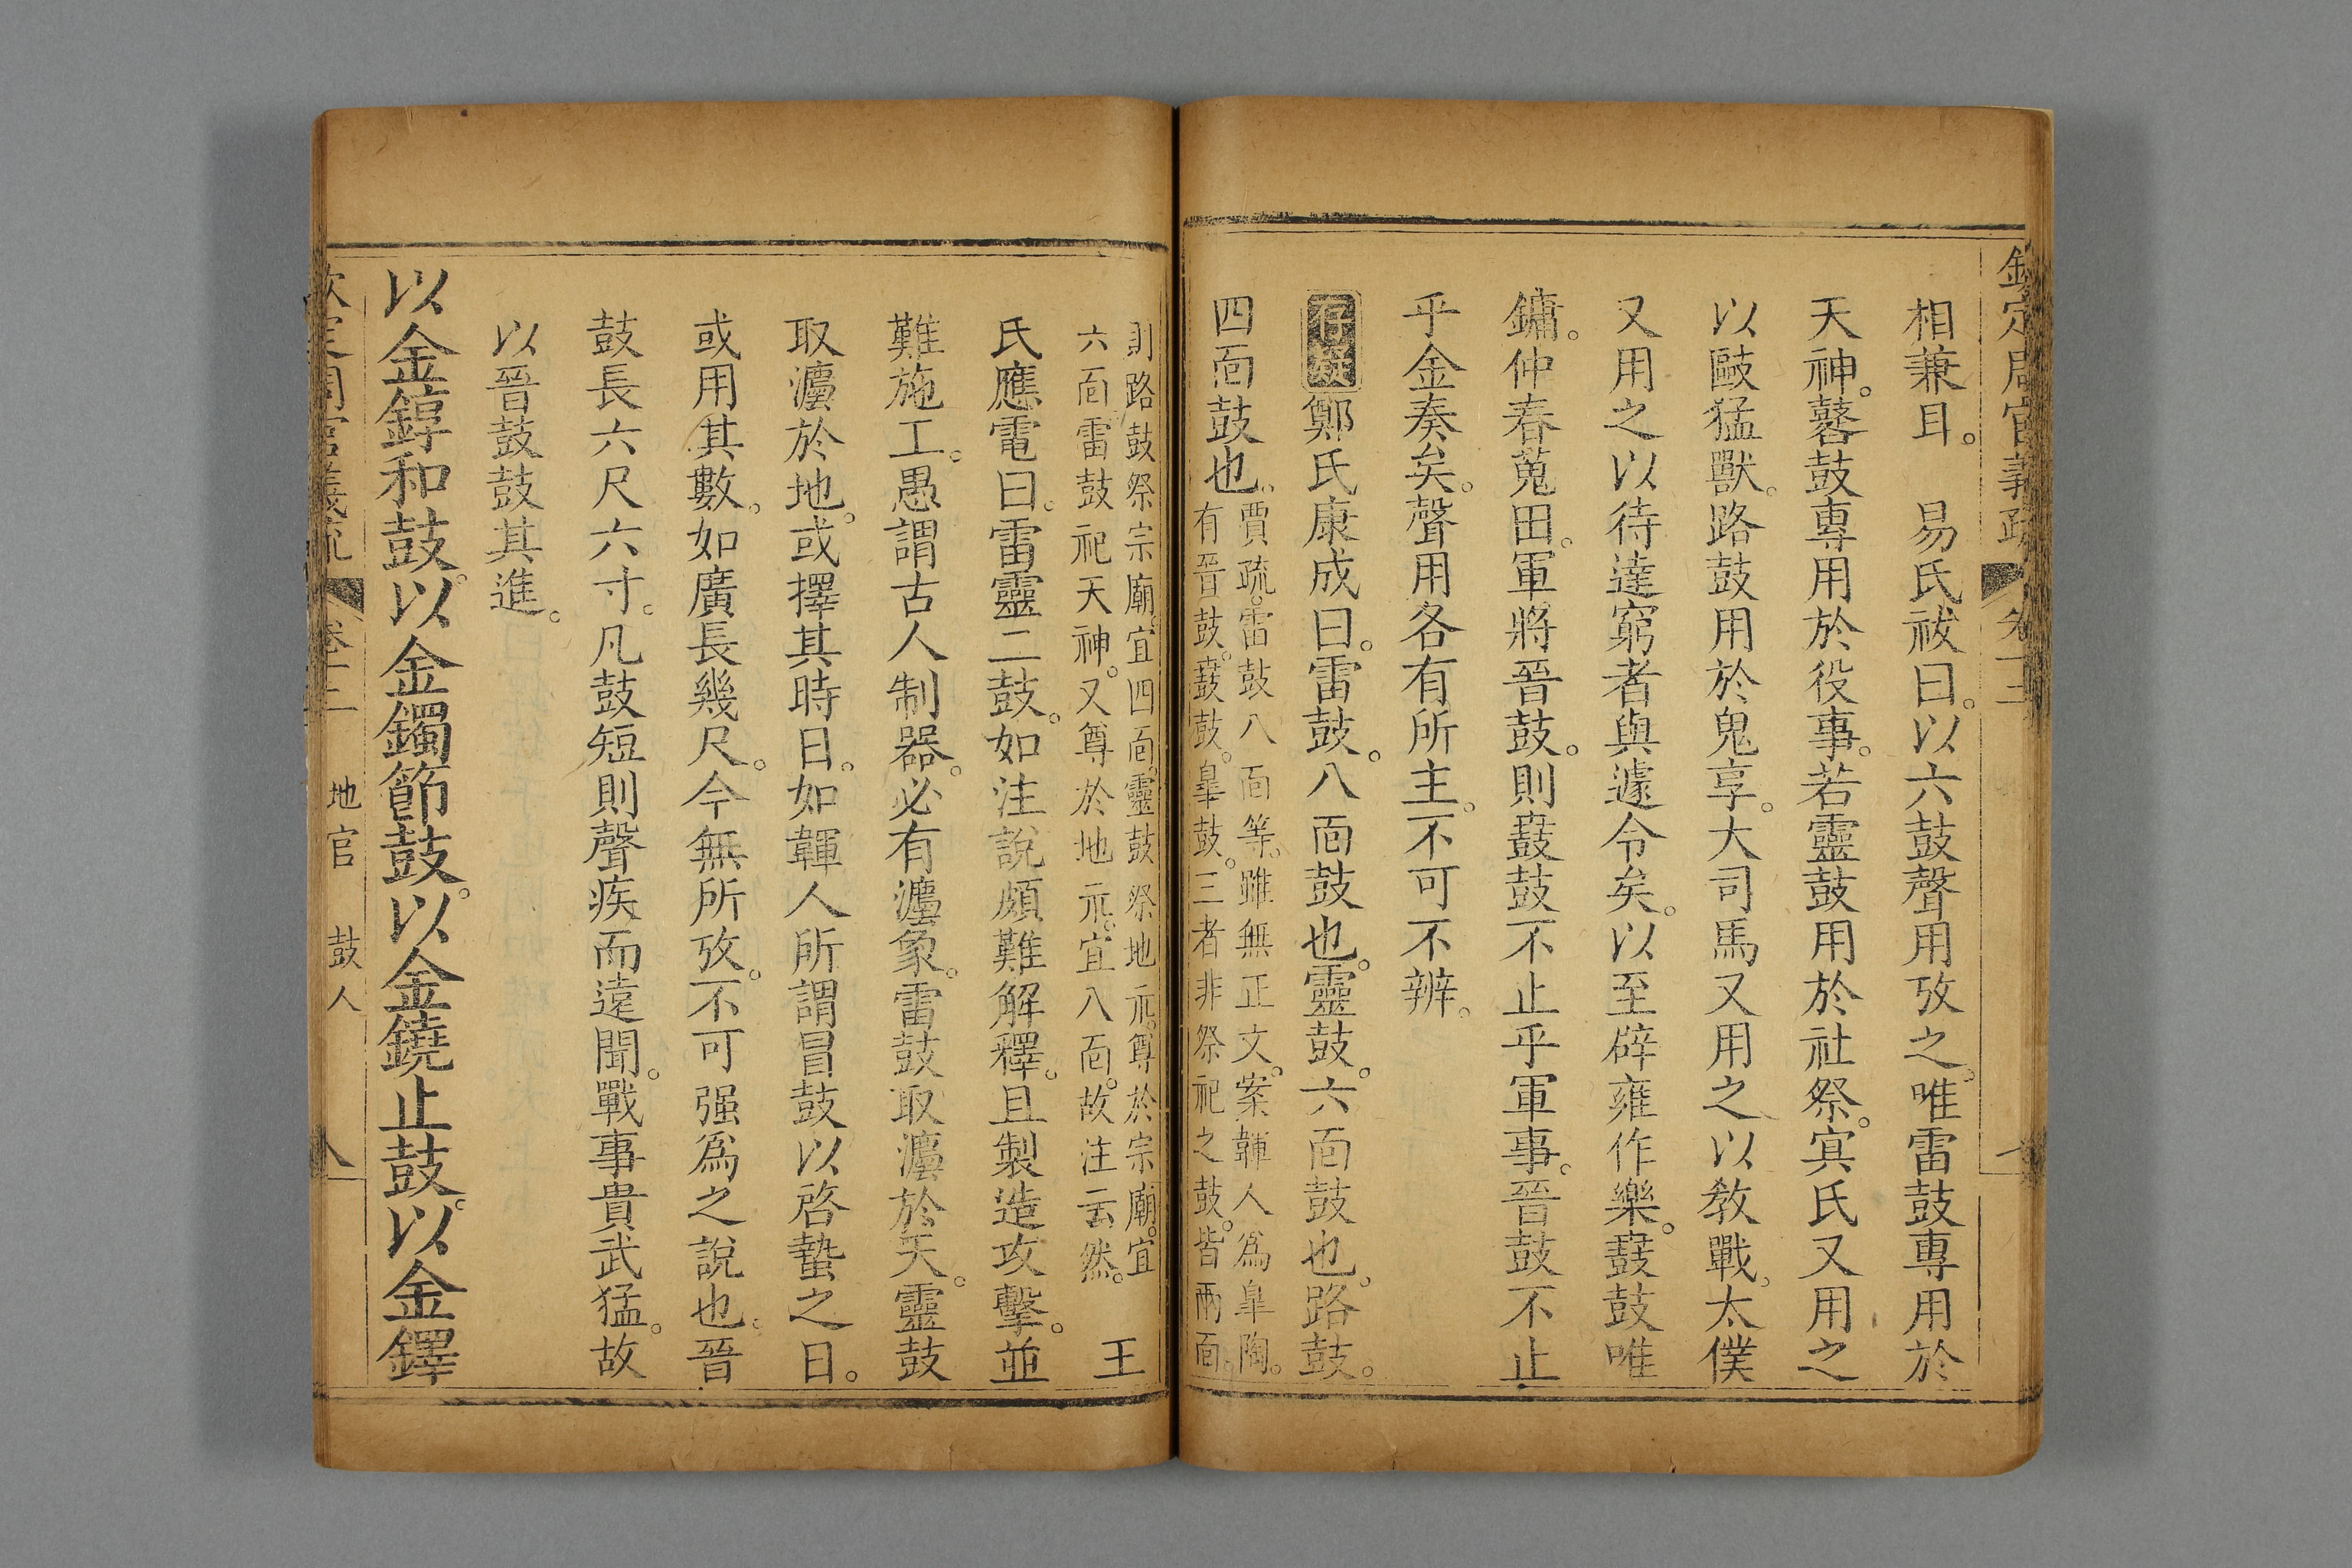 欽定周官義疏 卷十二
相兼耳。 易氏祓曰。以六鼓聲用攷之。唯雷鼓專用於
天神。鼛鼓專用於役事。若靈鼓用於社祭。㝠氏又用之
以敺猛獸。路鼓用於鬼享。大司馬又用之以教戰。太僕
又用之以待達窮者與遽令矣。以至辟雍作樂。鼖鼓唯
鏞。仲春蒐田。軍將晉鼓。則鼖鼓不止乎軍事。晉鼓不止
乎金奏矣。聲用各有所主。不可不辨。
存疑 鄭氏康成曰。雷鼓。八面鼓也。靈鼓。六面鼓也。路鼓。
四面鼓也。賈疏。雷鼓八面等。雖無正文。案韗人爲臯陶。
有晉鼓。鼖鼓。臯鼓。三者非祭祀之鼓。皆兩面。
則路鼓祭宗廟。宜四面。靈鼓祭地示。尊於宗廟。宜
六面。雷鼓祀天神。又尊於地示。宜八面。故注云然。 王
氏應電曰。雷靈二鼓。如注說頗難解釋。且製造攻擊。並
難施工。愚謂古人制器。必有灋象。雷鼓取灋於天。靈鼓
取灋於地。或擇其時日。如韗人所謂冒鼓以啓蟄之日。
或用其數。如廣長幾尺。今無所攷。不可强爲之說也。晉
鼓長六尺六寸。凡鼓短則聲疾而遠聞。戰事貴武猛。故
以晉鼓鼓其進。
以金錞和鼓。以金鐲節鼓。以金鐃止鼓。以金鐸
欽定周官義疏 卷十二 地官 鼓人 八